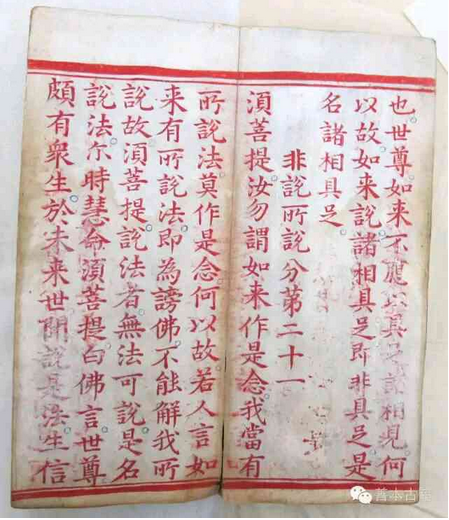 也世尊如来不應以具足諸相見何
以故如来說諸相具足即非具足是
名諸相具足
非說所說分第二十一
湏菩提汝勿謂如来作是念我當有
所說法莫作是念何以故若人言如
来有所說法即為謗佛不能解我所
說故湏菩提說法者無法可說是名
說法尒時慧命湏菩提白佛言世尊
頗有衆生於未来世聞說是法生信
善本古籍